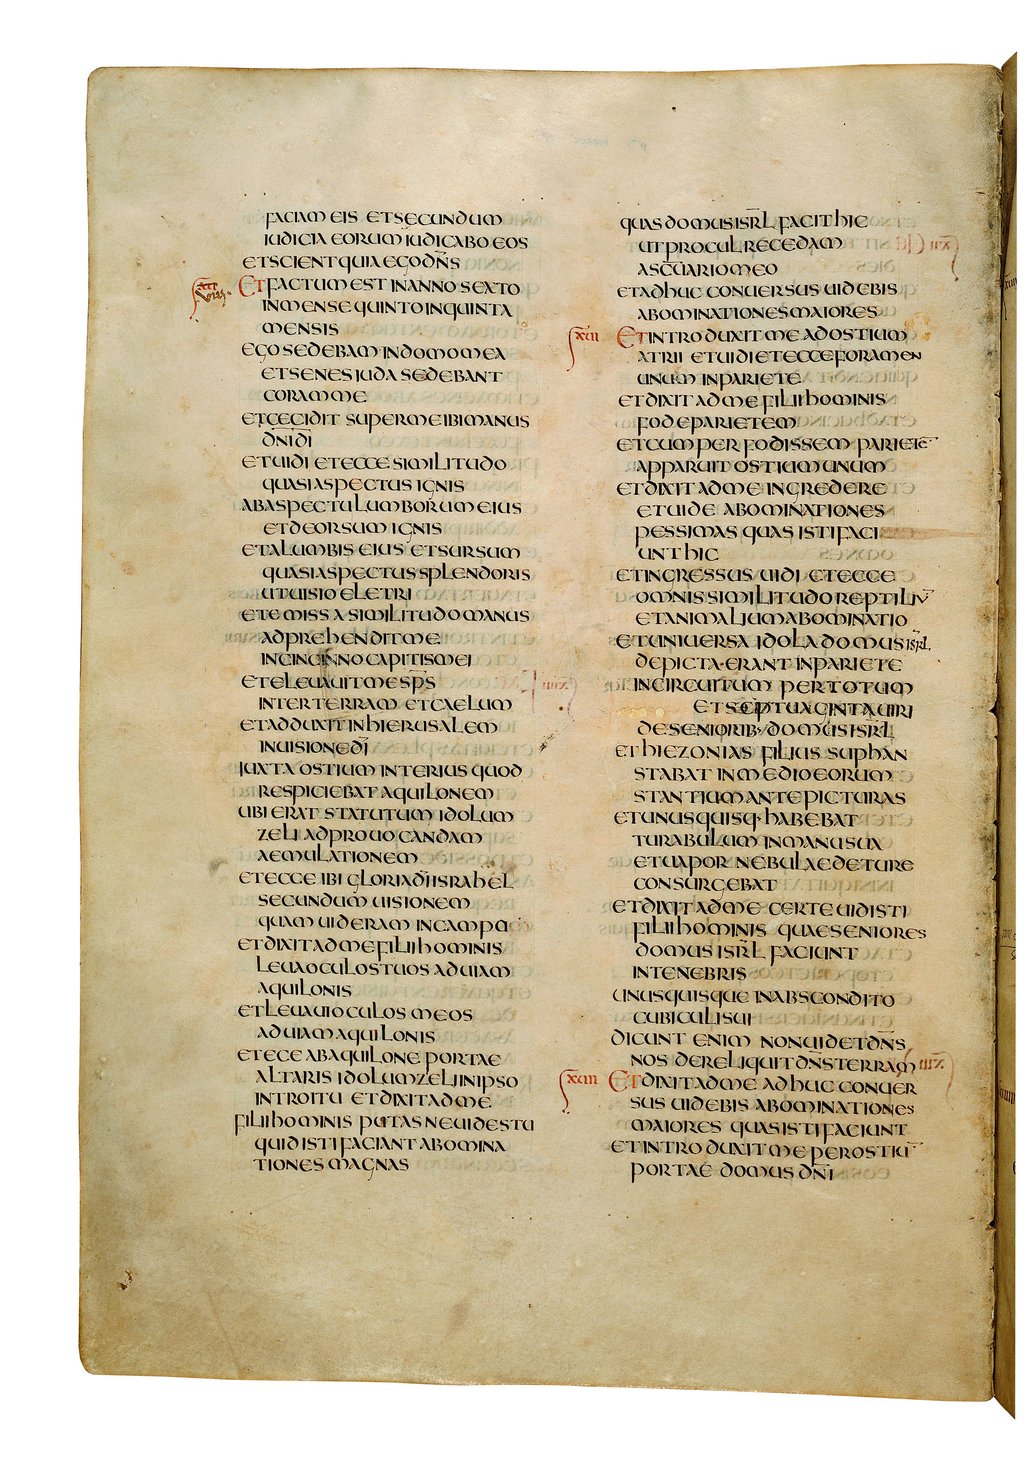 FACIAM EIS ET SECUNDUM
IUDICIA EORUM IUDICABO EOS
ET SCIENT QUIA EGO DN̄S
ET FACTUM EST IN ANNO SEXTO
IN MENSE QUINTO IN QUINTA
MENSIS
EGO SEDEBAM IN DOMO MEA
ET SENES IUDA SEDEBANT
CORAM ME
ET CECIDIT SUPER ME IBI MANUS
DN̄I DĪ
ET UIDI ET ECCE SIMILITUDO
QUASI ASPECTUS IGNIS
AB ASPECTU LUMBORUM EIUS
ET DEORSUM IGNIS
ET A LUMBIS EIUS ET SURSUM
QUASI ASPECTUS SPLENDORIS
UT UISIO ELETRI
ET EMISSA SIMILITUDO MANUS
ADPREHENDIT ME
IN CINCINNO CAPITIS MEI
ET ELEUAUIT ME SPS̄
INTER TERRAM ET CAELUM
ET ADDUXIT IN HIERUSALEM
IN UISIONE DĪ
IUXTA OSTIUM INTERIUS QUOD
RESPICIEBAT AQUILONEM
UBI ERAT STATUTUM IDOLUM
ZELI AD PROUOCANDAM
AEMULATIONEM
ET ECCE IBI GLORIA DĪ ISRAHEL
SECUNDUM UISIONEM
QUAM UIDERAM IN CAMPO
ET DIXIT AD ME FILII HOMINIS
LEUA OCULOS TUOS AD UIAM
AQUILONIS
ET LEUAUI OCULOS MEOS
AD UIAM AQUILONIS
ET ECE AB AQUILONE PORTAE
ALTARIS IDOLUM ZELI IN IPSO
INTROITU ET DIXIT AD ME
FILII HOMINIS PUTAS NE UIDES TU
QUID ISTI FACIANT ABOMINA
TIONES MAGNAS
QUAS DOMUS ISRL̄ FACIT HIC
UT PROCUL RECEDAM
A SCŪARIO MEO
ET ADHUC CONUERSUS UIDEBIS
ABOMINATIONES MAIORES
XIII ET INTRODUXIT ME AD OSTIUM
ATRII ET UIDI ET ECCE FORAMEN
UNUM IN PARIETE
ET DIXIT AD ME FILII HOMINIS
FODE PARIETEM
ET CUM PERFODISSEM PARIETĒ
APPARUIT OSTIUM UNUM
ET DIXIT AD ME INGREDERE
ET UIDE ABOMINATIONES
PESSIMAS QUAS ISTI FACI
UNT HIC
ET INGRESSUS UIDI ET ECCE
OMNIS SIMILITUDO REPTILIŪ
ET ANIMALIUM ABOMINATIO
ET UNIUERSA IDOLA DOMUS ISRL̄
DEPICTA ERANT IN PARIETE
IN CIRCUITUM PER TOTUM
ET SEPTUAGINTA UIRI
DE SENIORIB· DOMUS ISRL̄
ET HIEZONIAS FILIUS SUPHAN
STABAT IN MEDIO EORUM
STANTIUM ANTE PICTURAS
ET UNUSQUISQ· HABEBAT
TURABULUM IN MANU SUA
ET UAPOR NEBULAE DE TURE
CONSURGEBAT
ET DIXIT AD ME CERTE UIDISTI
FILII HOMINIS QUAE SENIORES
DOMUS ISRL̄ FACIUNT
IN TENEBRIS
UNUSQUISQUE IN ABSCONDITO
CUBICULI SUI
DICUNT ENIM NON UIDET DN̄S
NOS DERELIQUIT DN̄S TERRAM
XIIII ET DIXIT AD ME ADHUC CONUER
SUS UIDEBIS ABOMINATIONES
MAIORES QUAS ISTI FACIUNT
ET INTRODUXIT ME PER OSTIŪ
PORTAE DOMUS DN̄I